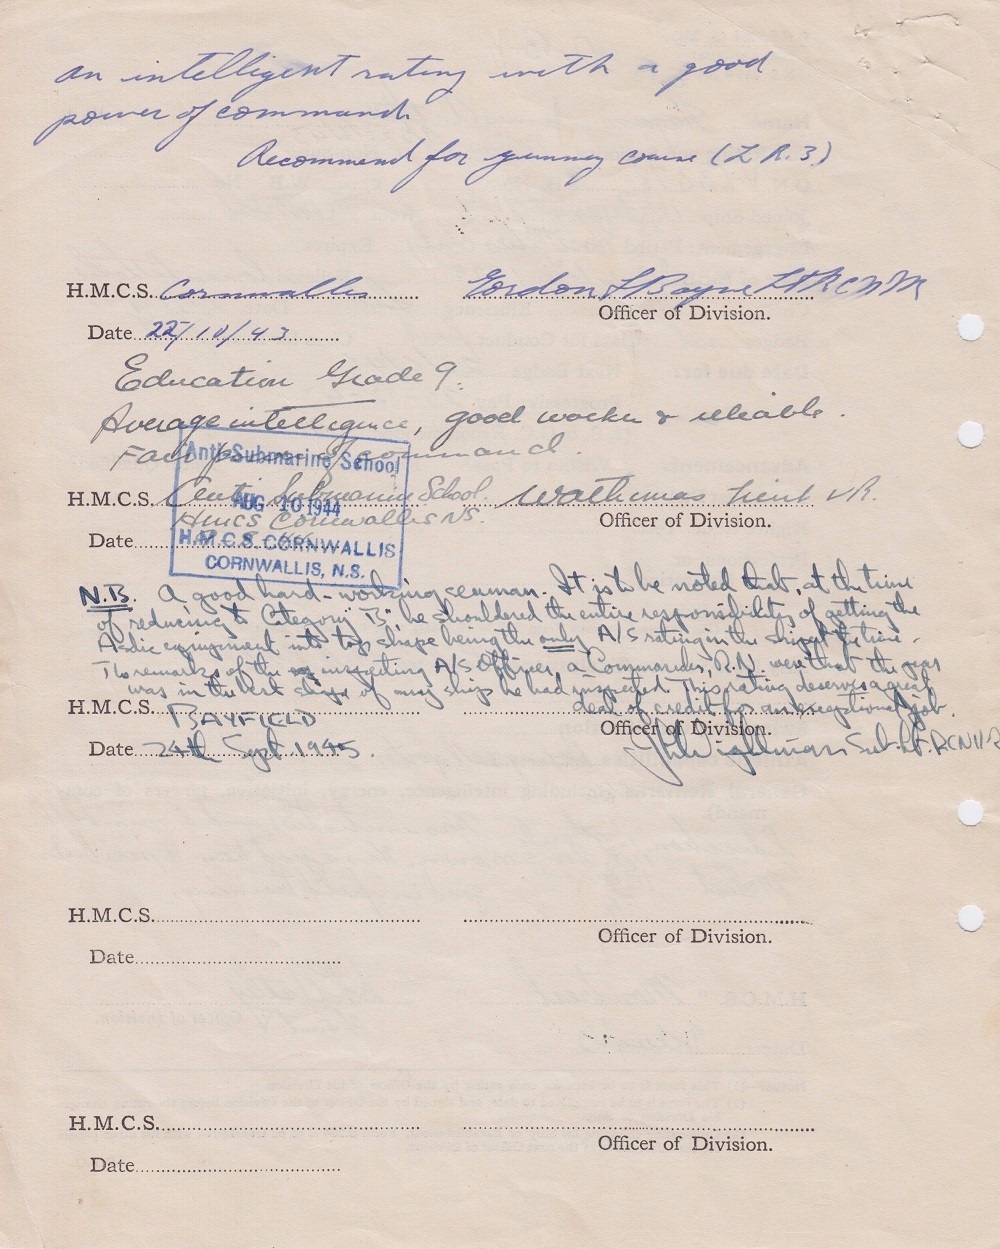 an intelligent rating with a good
power of command.
Recommend for gunnery course (L.R.3.)
H.M.C.S. Cornwallis Gordon
Officer of Division.
Date 22/10/43
Education Grade 9.
Average intelligence, good worker & reliable.
Fair power of command.
Anti-Submarine School
H.M.C.S. Submarine School.
Officer of Division.
AUG 10 1944
HMCS Cornwallis NS.
Date
H.M.C.S. CORNWALLIS
CORNWALLIS, N.S.
N.B. A good hard-working seaman. It is to be noted that, at the time
of reducing to Category "B", he shouldered the entire responsibility of getting the
Asdic equipment into top shape being the only A/S rating in the ship at the time.
The remarks of the inspecting A/S Officer, a Commander, R.N. were that the gear
was in the best shape of any ship he had inspected. This rating deserves a great
deal of credit for an exceptional job.
H.M.C.S. BAYFIELD
Officer of Division.
Date 24th Sept. 1945. Sub-Lt. RCNVR
H.M.C.S.
Officer of Division.
Date
H.M.C.S.
Officer of Division.
Date